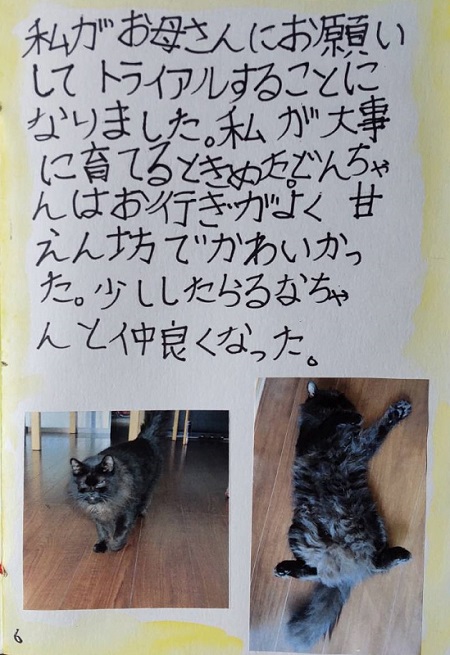 私がお母さんにお願い
してトライアルすることに
なりました。私が大事
に育てるときめた。どんちゃ
んはお行ぎがよく甘
えん坊でかわいかっ
た。少ししたらるなちゃ
んと仲良くなった。
6